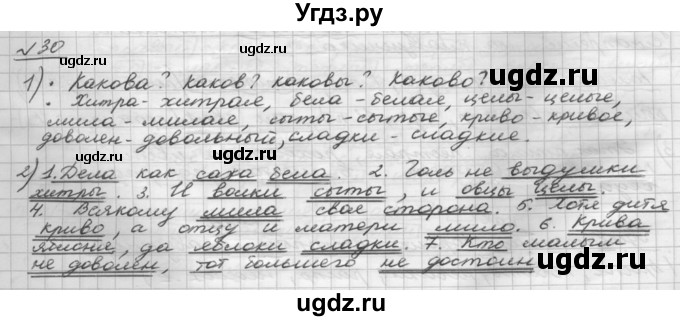 Угдз.ру
№30
1) • Какова? Каков? каковы? Каково?
• Хитра - хитрая, бела - белая, целы - целые,
мила - милая, сыты - сытые, криво - кривое,
доволен - довольный, сладки - сладкие.
2) 1. Дела как сажа бела. 2. Голь не выдумки
хитры. 3. И волки сыты, и овцы целы.
4. Всякому мила своя сторона. 5. Хотя дитя
криво, а отцу и матери мило. 6. Крива
яблоня, да яблоки сладки. 7. Кто малым
не доволен, тот большего не достоин.
ugdz.ru
ugdz.ru
ugdz.ru
ugdz.ru
ugdz.ru
ugdz.ru
ugdz.ru
ugdz.ru
ugdz.ru
ugdz.ru
ugdz.ru
ugdz.ru
ugdz.ru